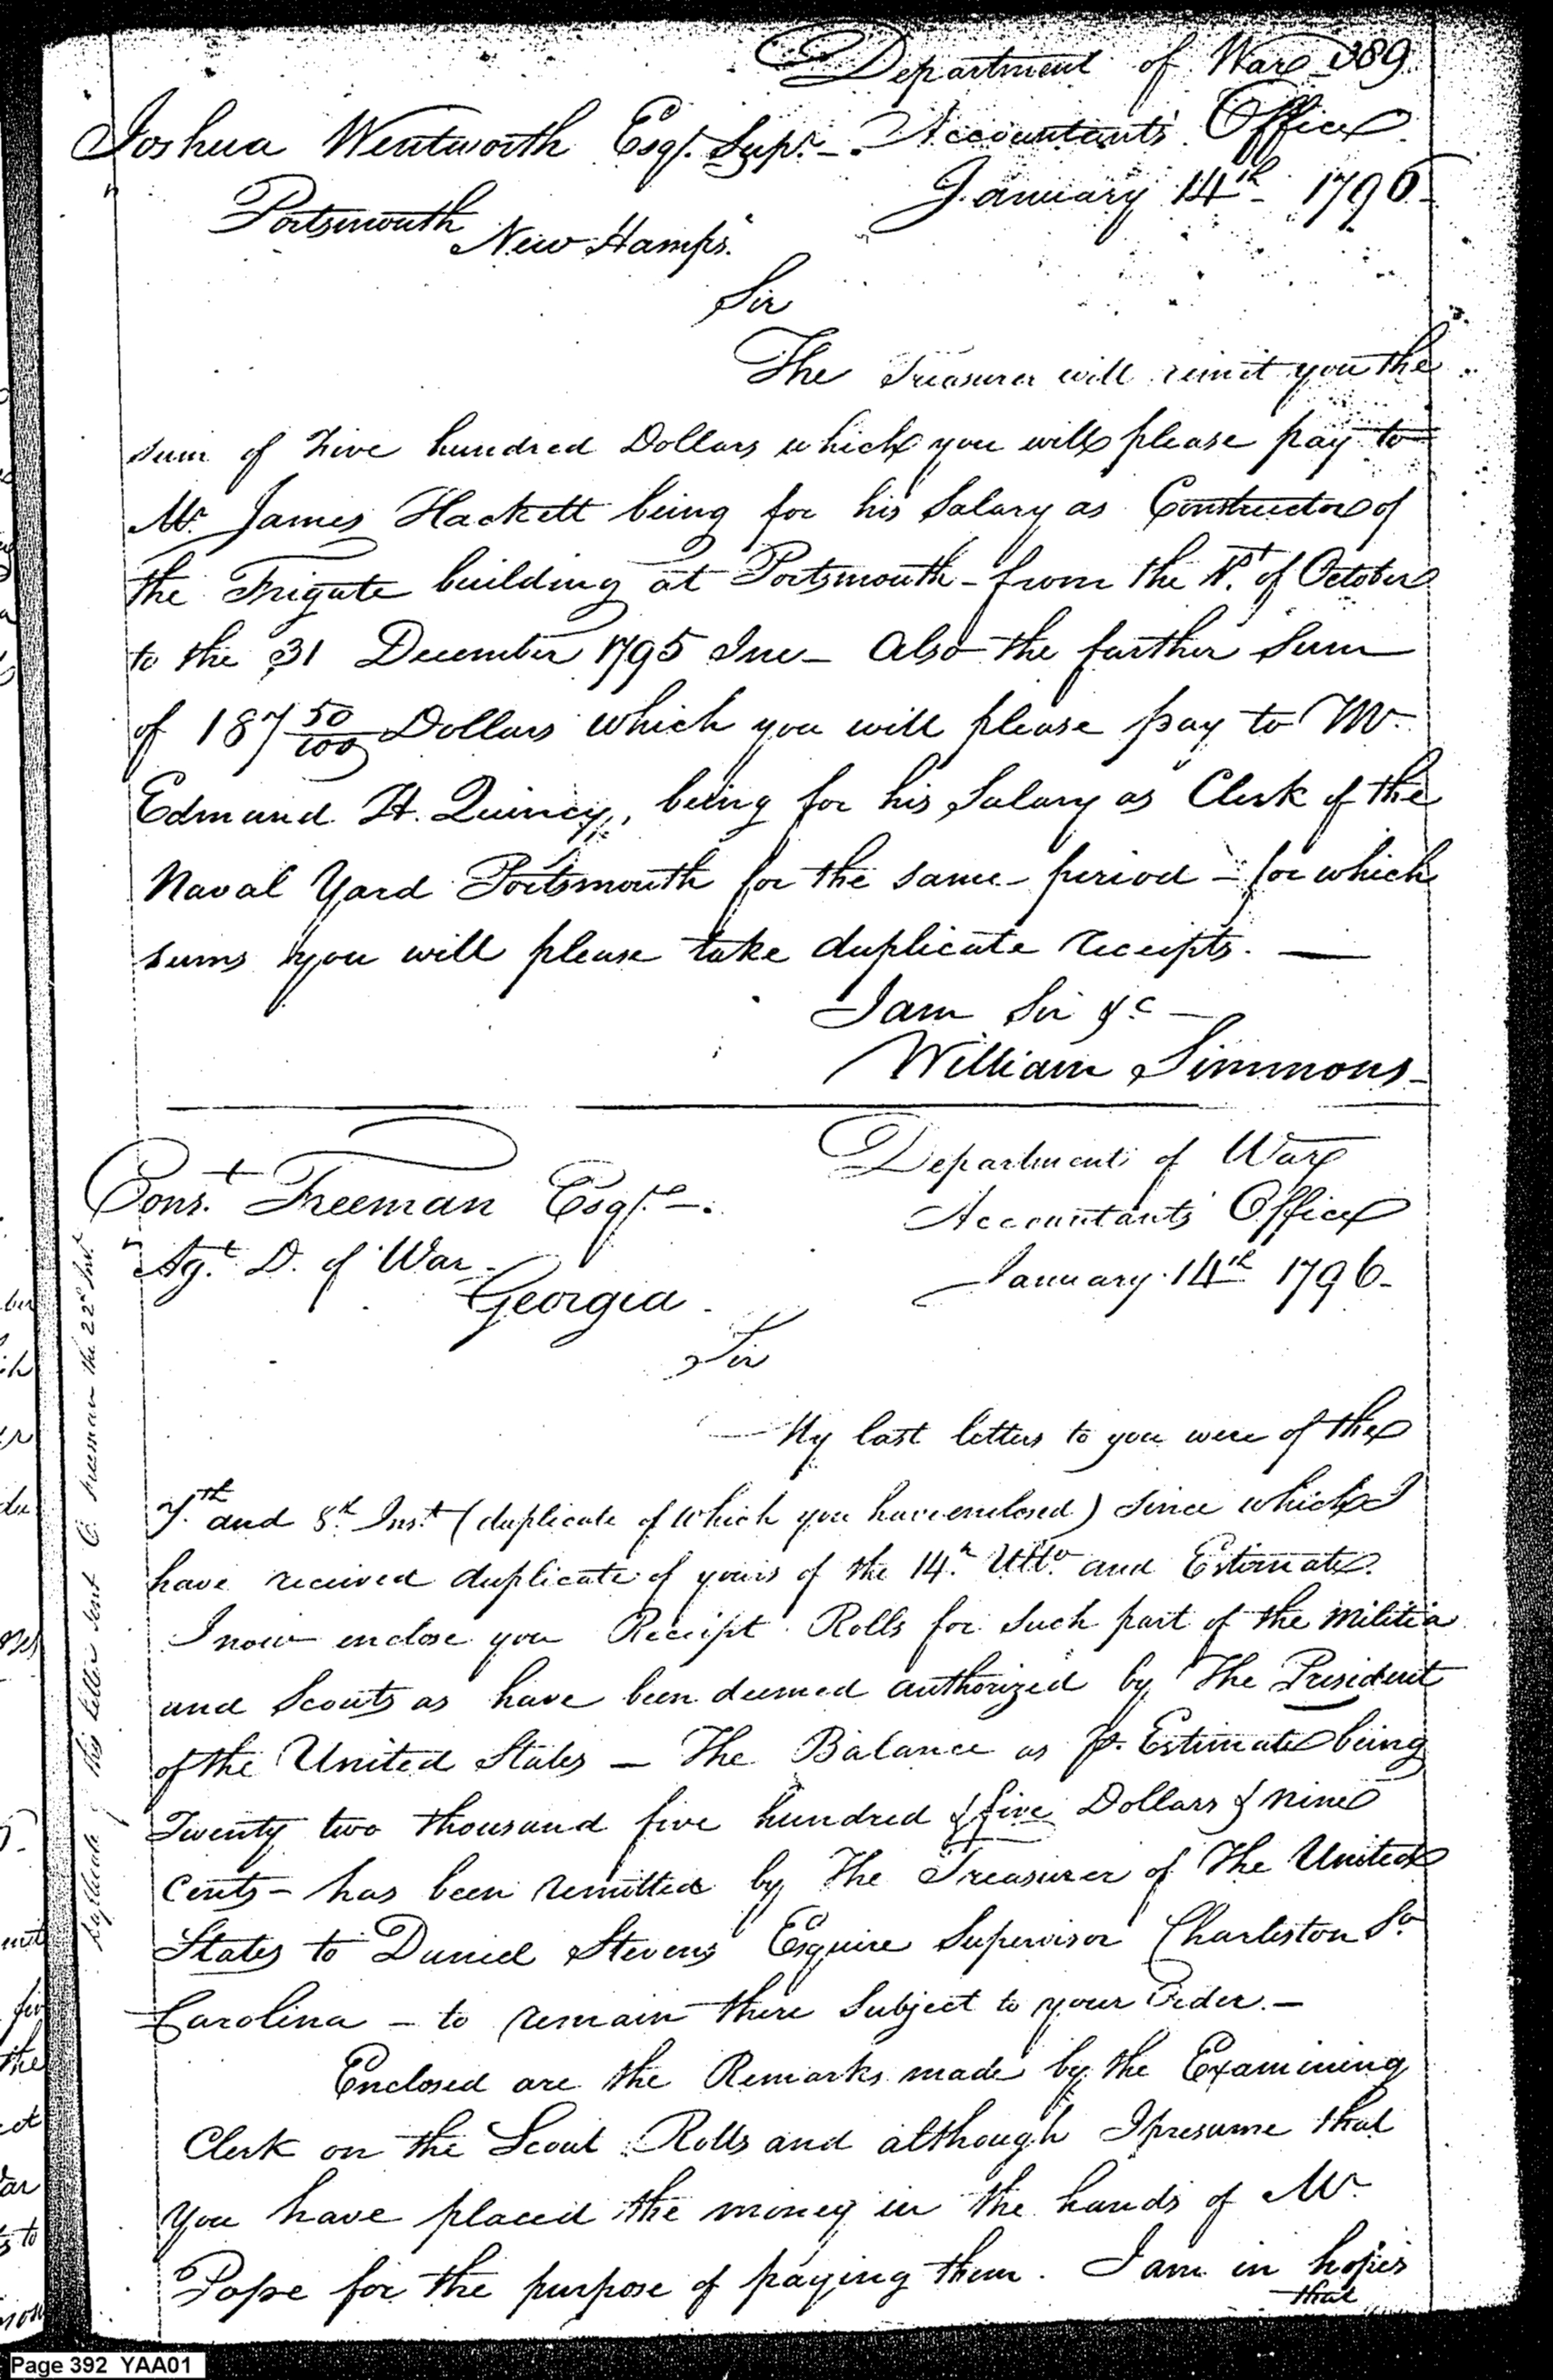 Department of War 389
Joshua Wentworth Esqr. Supr. - Accountants Office
Portsmouth January 14th 1796
New Hamps.
Sir
The Treasurer will remit you the
sum of Five hundred Dollars which you will please pay to
Mr. James Hackett being for his Salary as Constructor of
the Frigate building at Portsmouth - from the 1st. of October
to the 31 December 1795 Inc - Also the further Sum
of 187 50/100 Dollars which you will please pay to Mr.
Edmund H. Quincy, being for his Salary as Clerk of the
Naval Yard Portsmouth for the same period - for which
sums you will please take duplicate receipts. —
I am Sir &c —
William Simmons -
Department of War
Const. Freeman Esqr. - Accountants Office
Agt. D. of War - January 14th 1796 -
Georgia
Sir
My last letters to you were of the
7th. and 8th. Inst. (duplicate of which you have enclosed) Since which I
have received duplicate of yours of the 14th. Ulto. and Estimate.
I now enclose you Receipt Rolls for Such part of the Militia
and Scouts as have been deemed authorized by The President
of the United States - The Balance as pr. Estimate being
Twenty two thousand five hundred & five Dollars & nine
Cents - has been remitted by The Treasurer of The United
States to Daniel Stevens Esquire Supervisor Charleston So.
Carolina - to remain there Subject to your Order. -
Enclosed are the Remarks made by the Examining
Clerk on the Scout Rolls and although I presume that
You have placed the money in the hands of Mr.
Pope for the purpose of paying them. I am in hopes
that
Duplicate of this letter sent C. Freeman the 22d Inst.
Page 392 YAA01